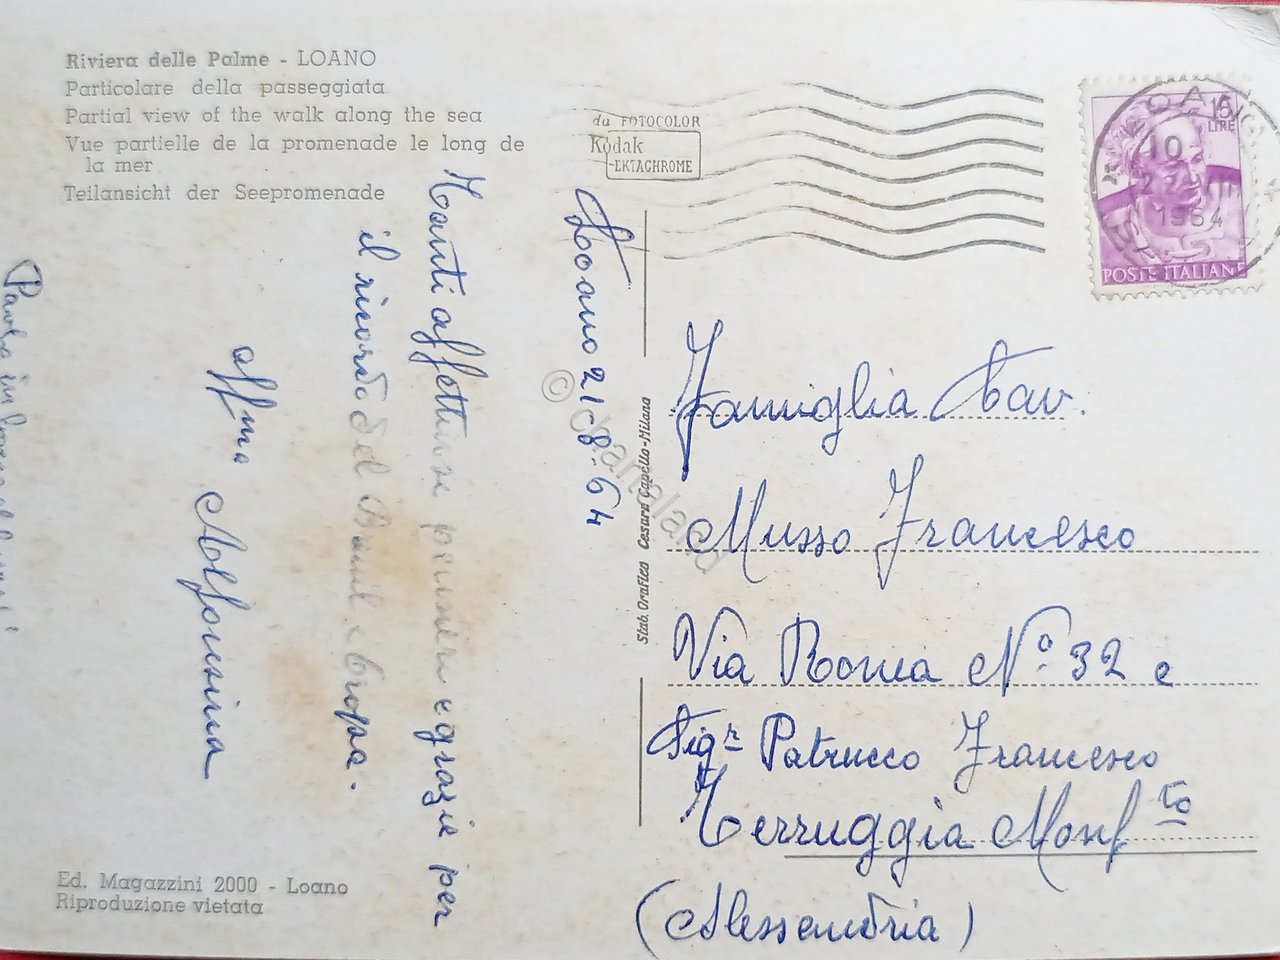 Riviera delle Palme - LOANO
Particolare della passeggiata
Partial view of the walk along the sea
Vue partielle de la promenade le long de
la mer
Teilansicht der Seepromenade
da FOTOCOLOR
Kodak
EKTACHROME
15
LIRE
1964
POSTE ITALIANE
Loano 21-8-64
Tanti affettuosi pensieri e grazie per
il ricordo del
affma Alfonsina
Paolo in
Famiglia Cav.
Musso Francesco
Via Roma N° 32 e
Sigr Patrucco Francesco
Terruggia Monfto
(Alessandria)
Stab. Grafico Cesare Capello - Milano
Ed. Magazzini 2000 - Loano
Riproduzione vietata
© chartaland